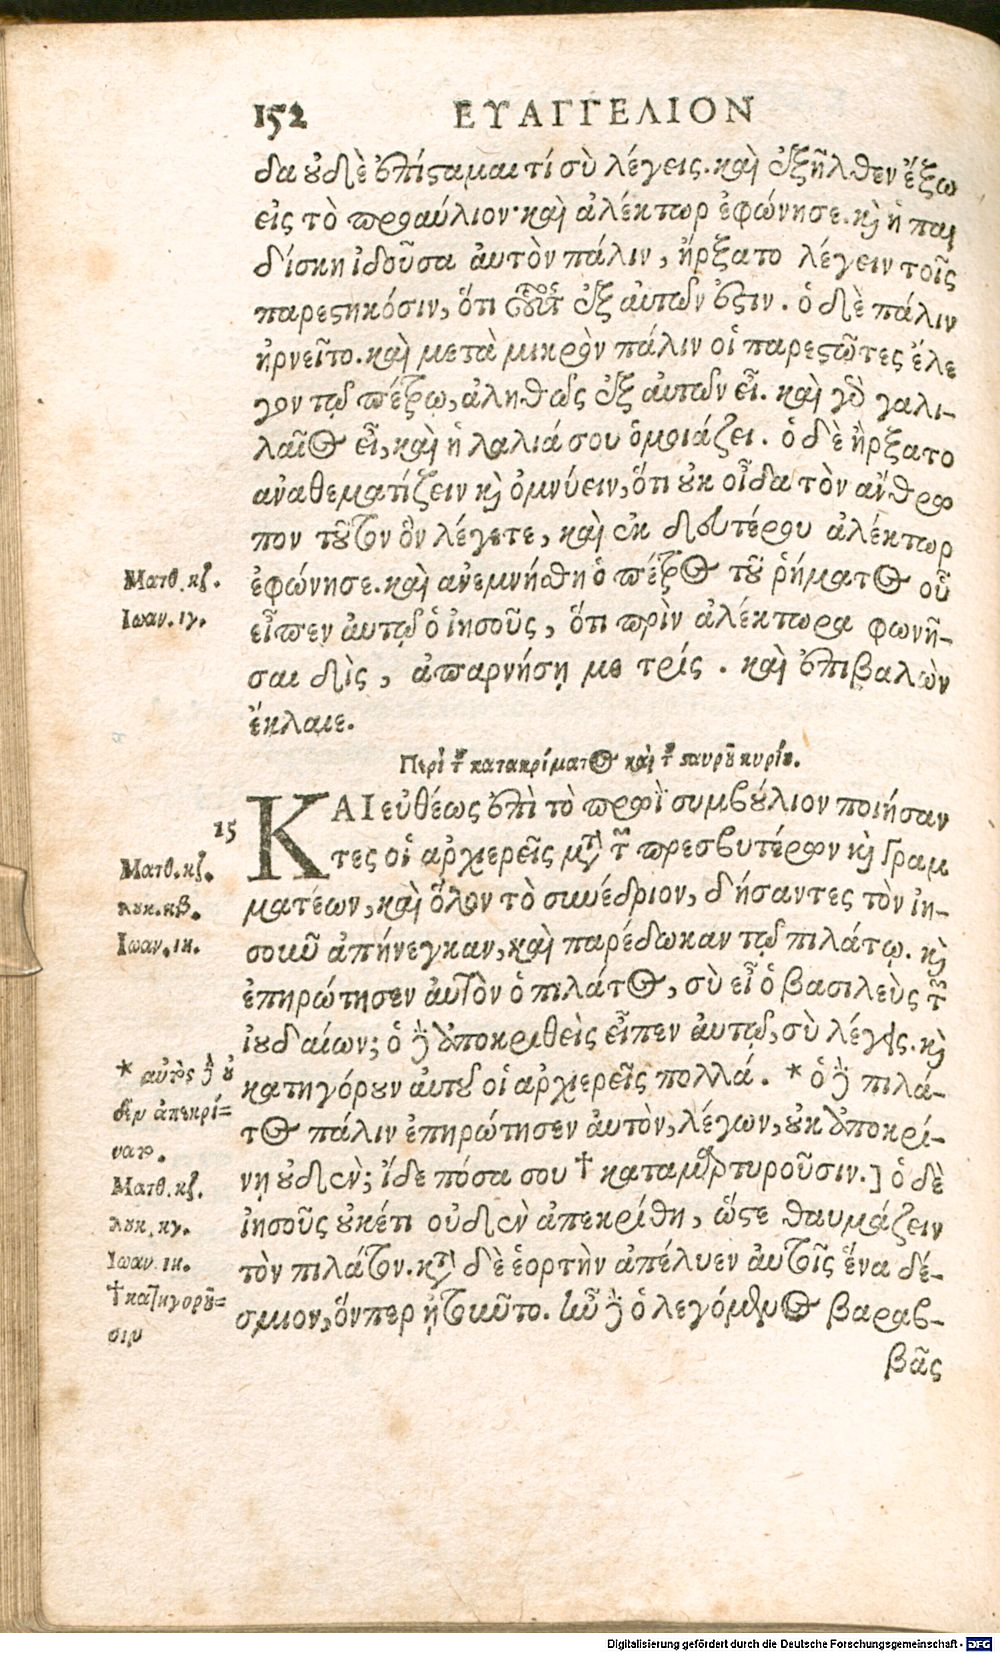 152 ΕΥΑΓΓΕΛΙΟΝ
δα οὐδὲ ἐπίσταμαι τί σὺ λέγεις. καὶ ἐξῆλθεν ἔξω
εἰς τὸ προαύλιον· καὶ ἀλέκτωρ ἐφώνησε. κὶ ἡ παι
δίσκη ἰδοῦσα αὐτὸν πάλιν, ἤρξατο λέγειν τοῖς
παρεστηκόσιν, ὅτι οὗτος ἐξ αὐτῶν ἐστιν. ὁ δὲ πάλιν
ἠρνεῖτο. καὶ μετὰ μικρὸν πάλιν οἱ παρεστῶτες ἔλε
γον τῷ πέτρῳ, ἀληθῶς ἐξ αὐτῶν εἶ. καὶ γὰρ γαλι-
λαῖος εἶ, καὶ ἡ λαλιά σου ὁμοιάζει. ὁ δὲ ἤρξατο
ἀναθεματίζειν κὶ ὀμνύειν, ὅτι οὐκ οἶδα τὸν ἄνθρω
πον τοῦτον ὃν λέγετε, καὶ ἐκ δευτέρου ἀλέκτωρ
Ματθ. κϛ. ἐφώνησε. καὶ ἀνεμνήσθη ὁ πέτρος τοῦ ῥήματος οὗ
Ιωαν. ιγ. εἶπεν αὐτῷ ὁ ἰησοῦς, ὅτι πρὶν ἀλέκτωρα φωνῆ-
σαι δὶς, ἀπαρνήσῃ με τρίς. καὶ ἐπιβαλὼν
ἔκλαιε.
Περὶ τοῦ κατακρίματος καὶ τοῦ σταυροῦ κυρίου.
15 ΚΑΙ εὐθέως ἐπὶ τὸ πρωῒ συμβούλιον ποιήσαν
τες οἱ ἀρχιερεῖς μετὰ τῶν πρεσβυτέρων κὶ γραμ
Ματθ. κζ. ματέων, καὶ ὅλον τὸ συνέδριον, δήσαντες τὸν ἰη-
λουκ. κβ. σοῦν ἀπήνεγκαν, καὶ παρέδωκαν τῷ πιλάτῳ. κὶ
Ιωαν. ιη. ἐπηρώτησεν αὐτὸν ὁ πιλάτος, σὺ εἶ ὁ βασιλεὺς τῶν
ἰουδαίων; ὁ δὲ ἀποκριθεὶς εἶπεν αὐτῷ, σὺ λέγεις. κὶ
* αὐτὸς δὲ οὐ κατηγόρουν αὐτοῦ οἱ ἀρχιερεῖς πολλά. * ὁ δὲ πιλά-
δὲν ἀπεκρί= τος πάλιν ἐπηρώτησεν αὐτὸν, λέγων, οὐκ ἀποκρί-
νατο. νῃ οὐδὲν; ἴδε πόσα σου † καταμαρτυροῦσιν.] ὁ δὲ
Ματθ. κζ. ἰησοῦς οὐκέτι οὐδὲν ἀπεκρίθη, ὥστε θαυμάζειν
λουκ. κγ. τὸν πιλάτον. κατὰ δὲ ἑορτὴν ἀπέλυεν αὐτοῖς ἕνα δέ-
Ιωαν. ιη. σμιον, ὅνπερ ᾐτοῦντο. ἦν δὲ ὁ λεγόμενος βαραβ-
† κατηγοροῦ=
σιν
βᾶς
Digitalisierung gefördert durch die Deutsche Forschungsgemeinschaft - DFG